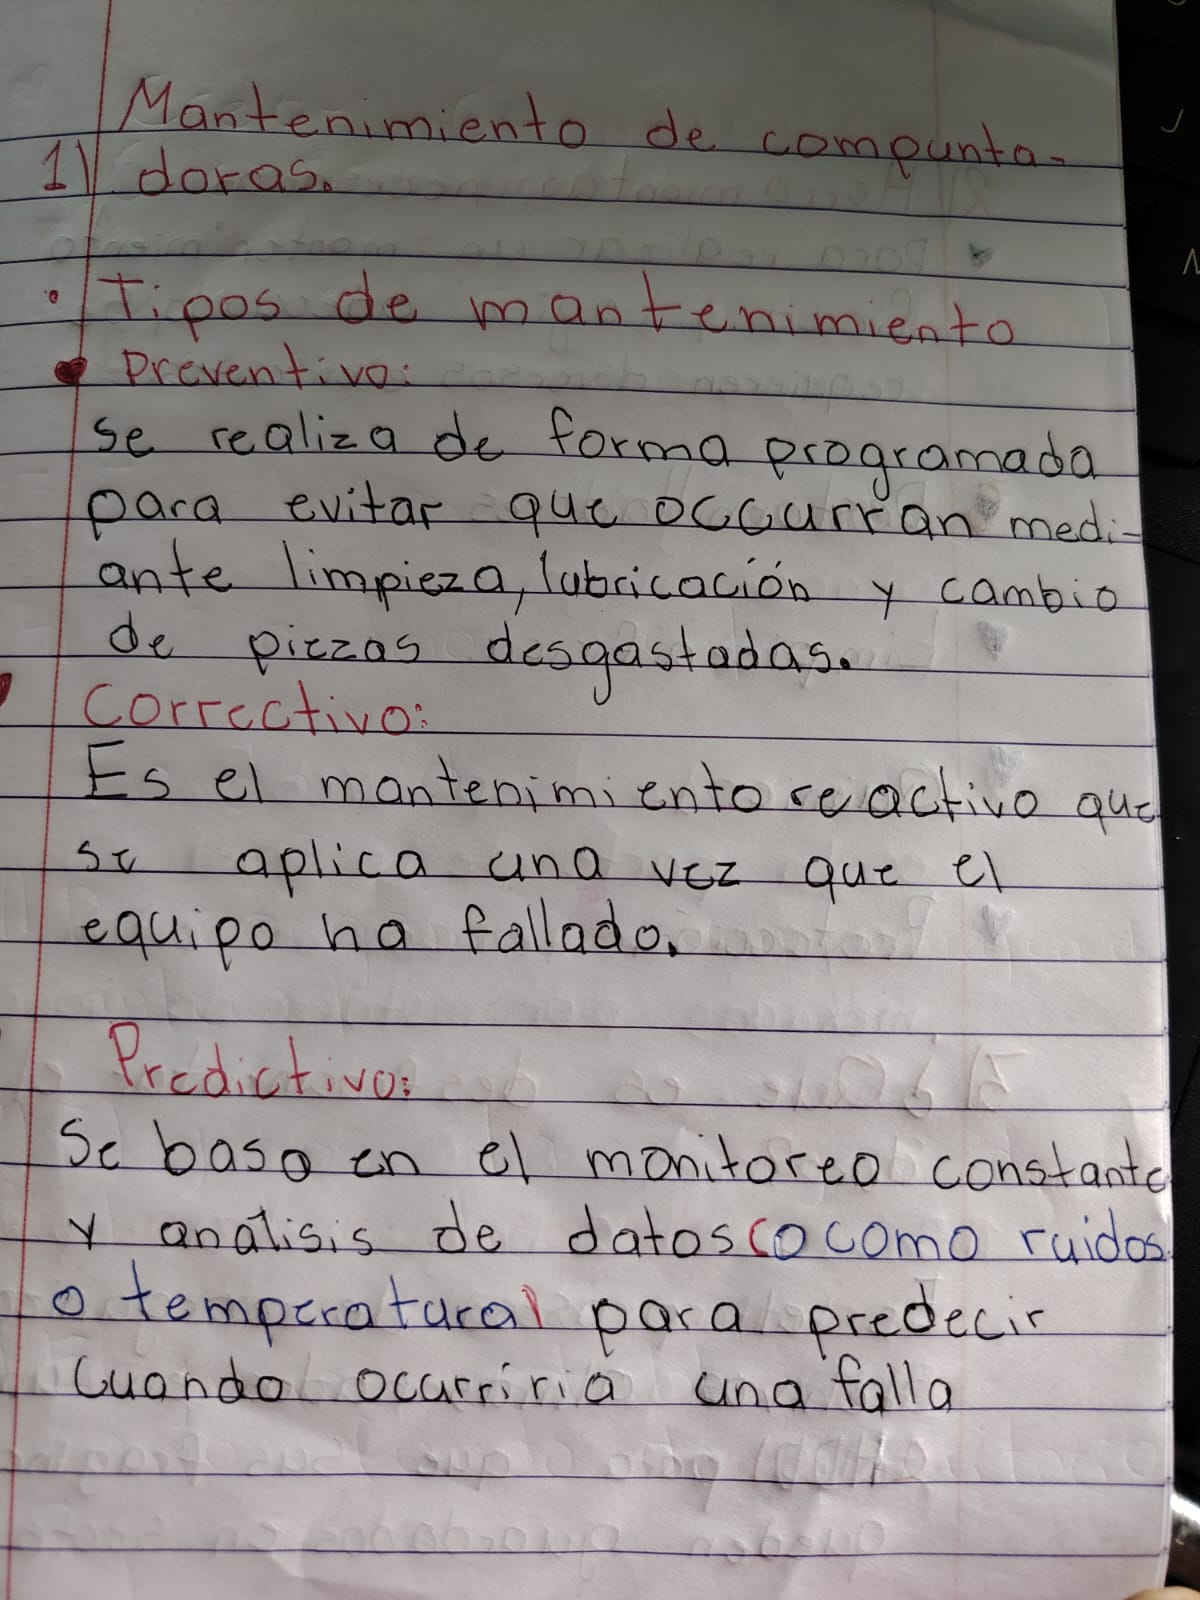 Mantenimiento de compunta-
1) doras.
• Tipos de mantenimiento
Preventivo:
se realiza de forma programada
para evitar que occurran medi-
ante limpieza, lubricación y cambio
de piezas desgastadas.
Correctivo:
Es el mantenimiento reactivo que
se aplica una vez que el
equipo ha fallado.
Predictivo:
Se basa en el monitoreo constante
y análisis de datos (o como ruidos
o temperatura) para predecir
cuando ocurriria una falla